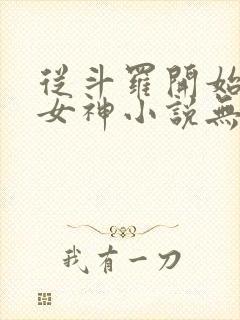 從斗羅開始
女神小說無
我有一刀